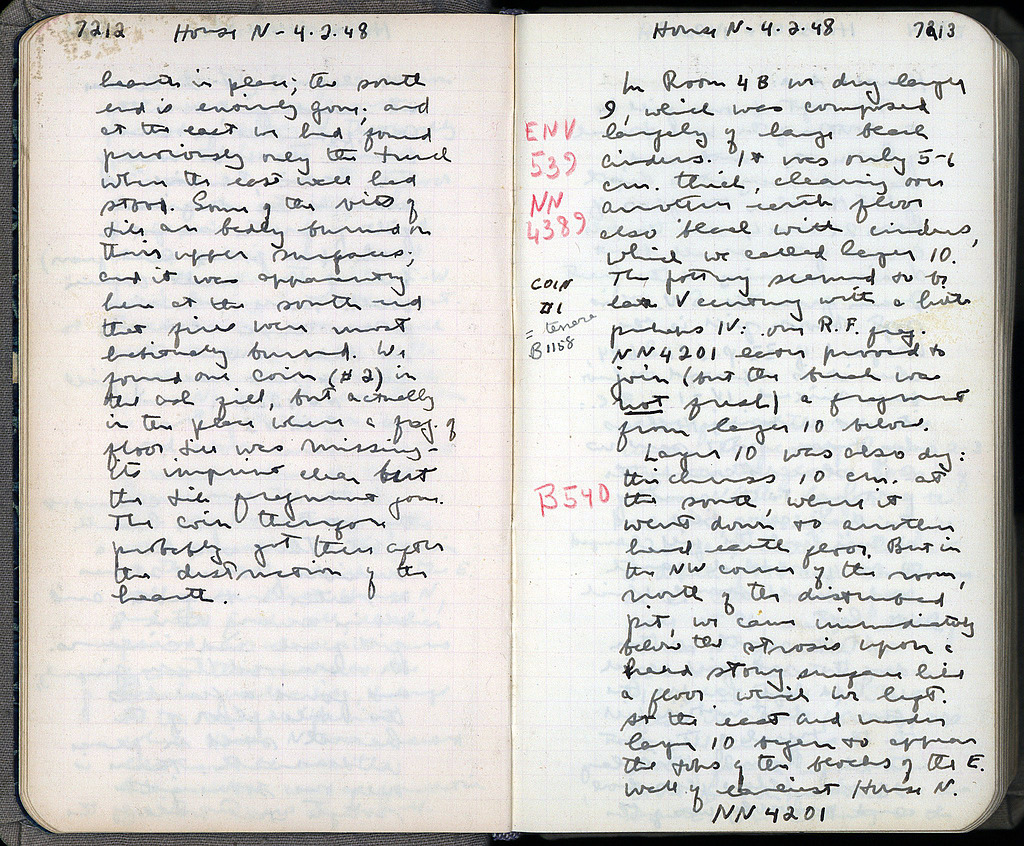 7212 House N - 4.2.48
hearth in place; the south
end is entirely gone; and
at the east we had found
previously only the trench
where the east wall had
stood. Some of the bits of
tile are badly burned on
their upper surfaces,
and it was apparently
here at the south end
that fires were most
habitually burned. We
found one coin (#2) in
the ash fill, but actually
in the place where a frag. of
floor tile was missing -
its imprint clear but
the tile fragment gone.
The coin therefore
probably got there after
the destruction of the
hearth.
House N - 4.2.48 7213
In Room 4B we dug layer
9, which was composed
largely of large black
cinders. It was only 5-6
cm. thick, cleaning over
another earth floor
also black with cinders,
which we called layer 10.
The pottery seemed to be
late V century with a little
perhaps IV: one R.F. frag.
NN4201 even proved to
join (but the break was
not fresh) a fragment
from layer 10 below.
Layer 10 was also dug:
thickness 10 cm. at
the south, where it
went down to another
hard earth floor. But in
the NW corner of the room,
north of the disturbed
pit, we came immediately
below the strosis upon a
hard stony surface like
a floor which we left.
To the east and under
layer 10 began to appear
the tops of the blocks of the E.
wall of earliest House N.
NN 4201
ENV
539
NN
4389
COIN
#1
= tessera
B1158
B540